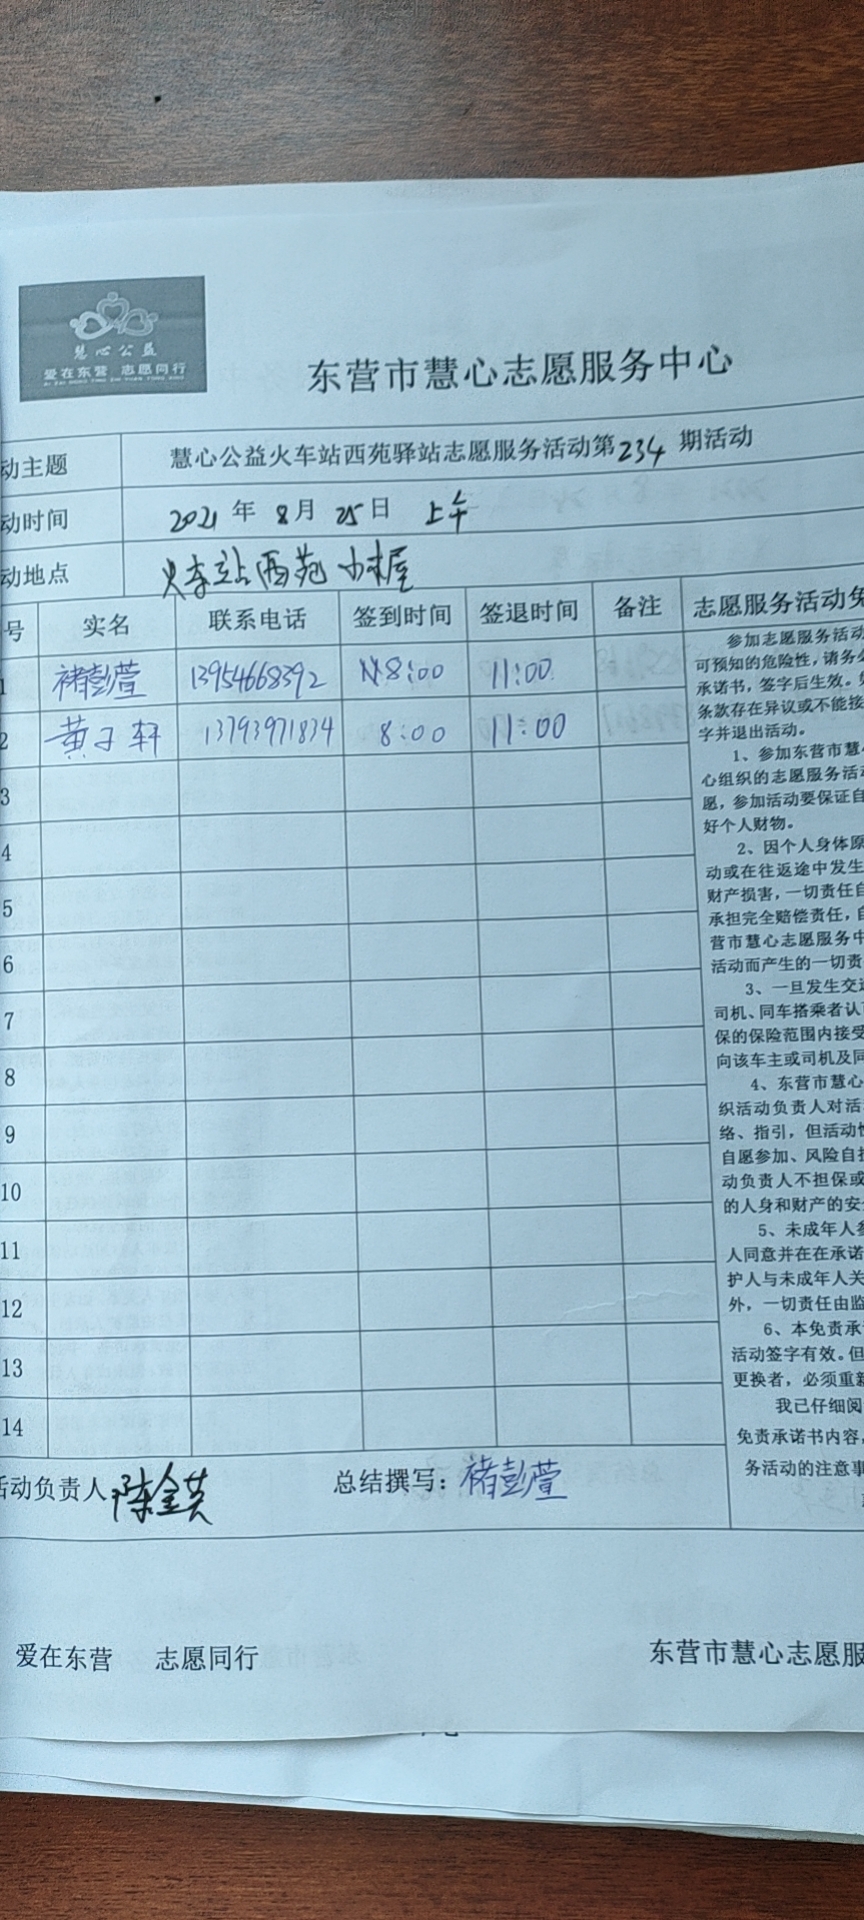 慧心公益
爱在东营 志愿同行
东营市慧心志愿服务中心
动主题 慧心公益火车站西苑驿站志愿服务活动第234期活动
动时间 2021年8月25日 上午
动地点 火车站西苑小木屋
号 实名 联系电话 签到时间 签退时间 备注 志愿服务活动免
1 褚彭萱 13954668392 8:00 11:00
2 黄子轩 13793971834 8:00 11:00
3
4
5
6
7
8
9
10
11
12
13
14
参加志愿服务活动
可预知的危险性，请务必
承诺书，签字后生效。
条款存在异议或不能接
字并退出活动。
1、参加东营市慧
心组织的志愿服务活动
愿，参加活动要保证自
好个人财物。
2、因个人身体原
动或在往返途中发生
财产损害，一切责任自
承担完全赔偿责任，自
营市慧心志愿服务中
活动而产生的一切责
3、一旦发生交通
司机、同车搭乘者认
保的保险范围内接受
向该车主或司机及同
4、东营市慧心
织活动负责人对活
络、指引，但活动
自愿参加、风险自担
动负责人不担保或
的人身和财产的安全
5、未成年人参
人同意并在在承诺
护人与未成年人关
外，一切责任由监
6、本免责承
活动签字有效。但
更换者，必须重新
我已仔细阅
免责承诺书内容，
务活动的注意事
活动负责人 陈金芝 总结撰写：褚彭萱
爱在东营 志愿同行 东营市慧心志愿服